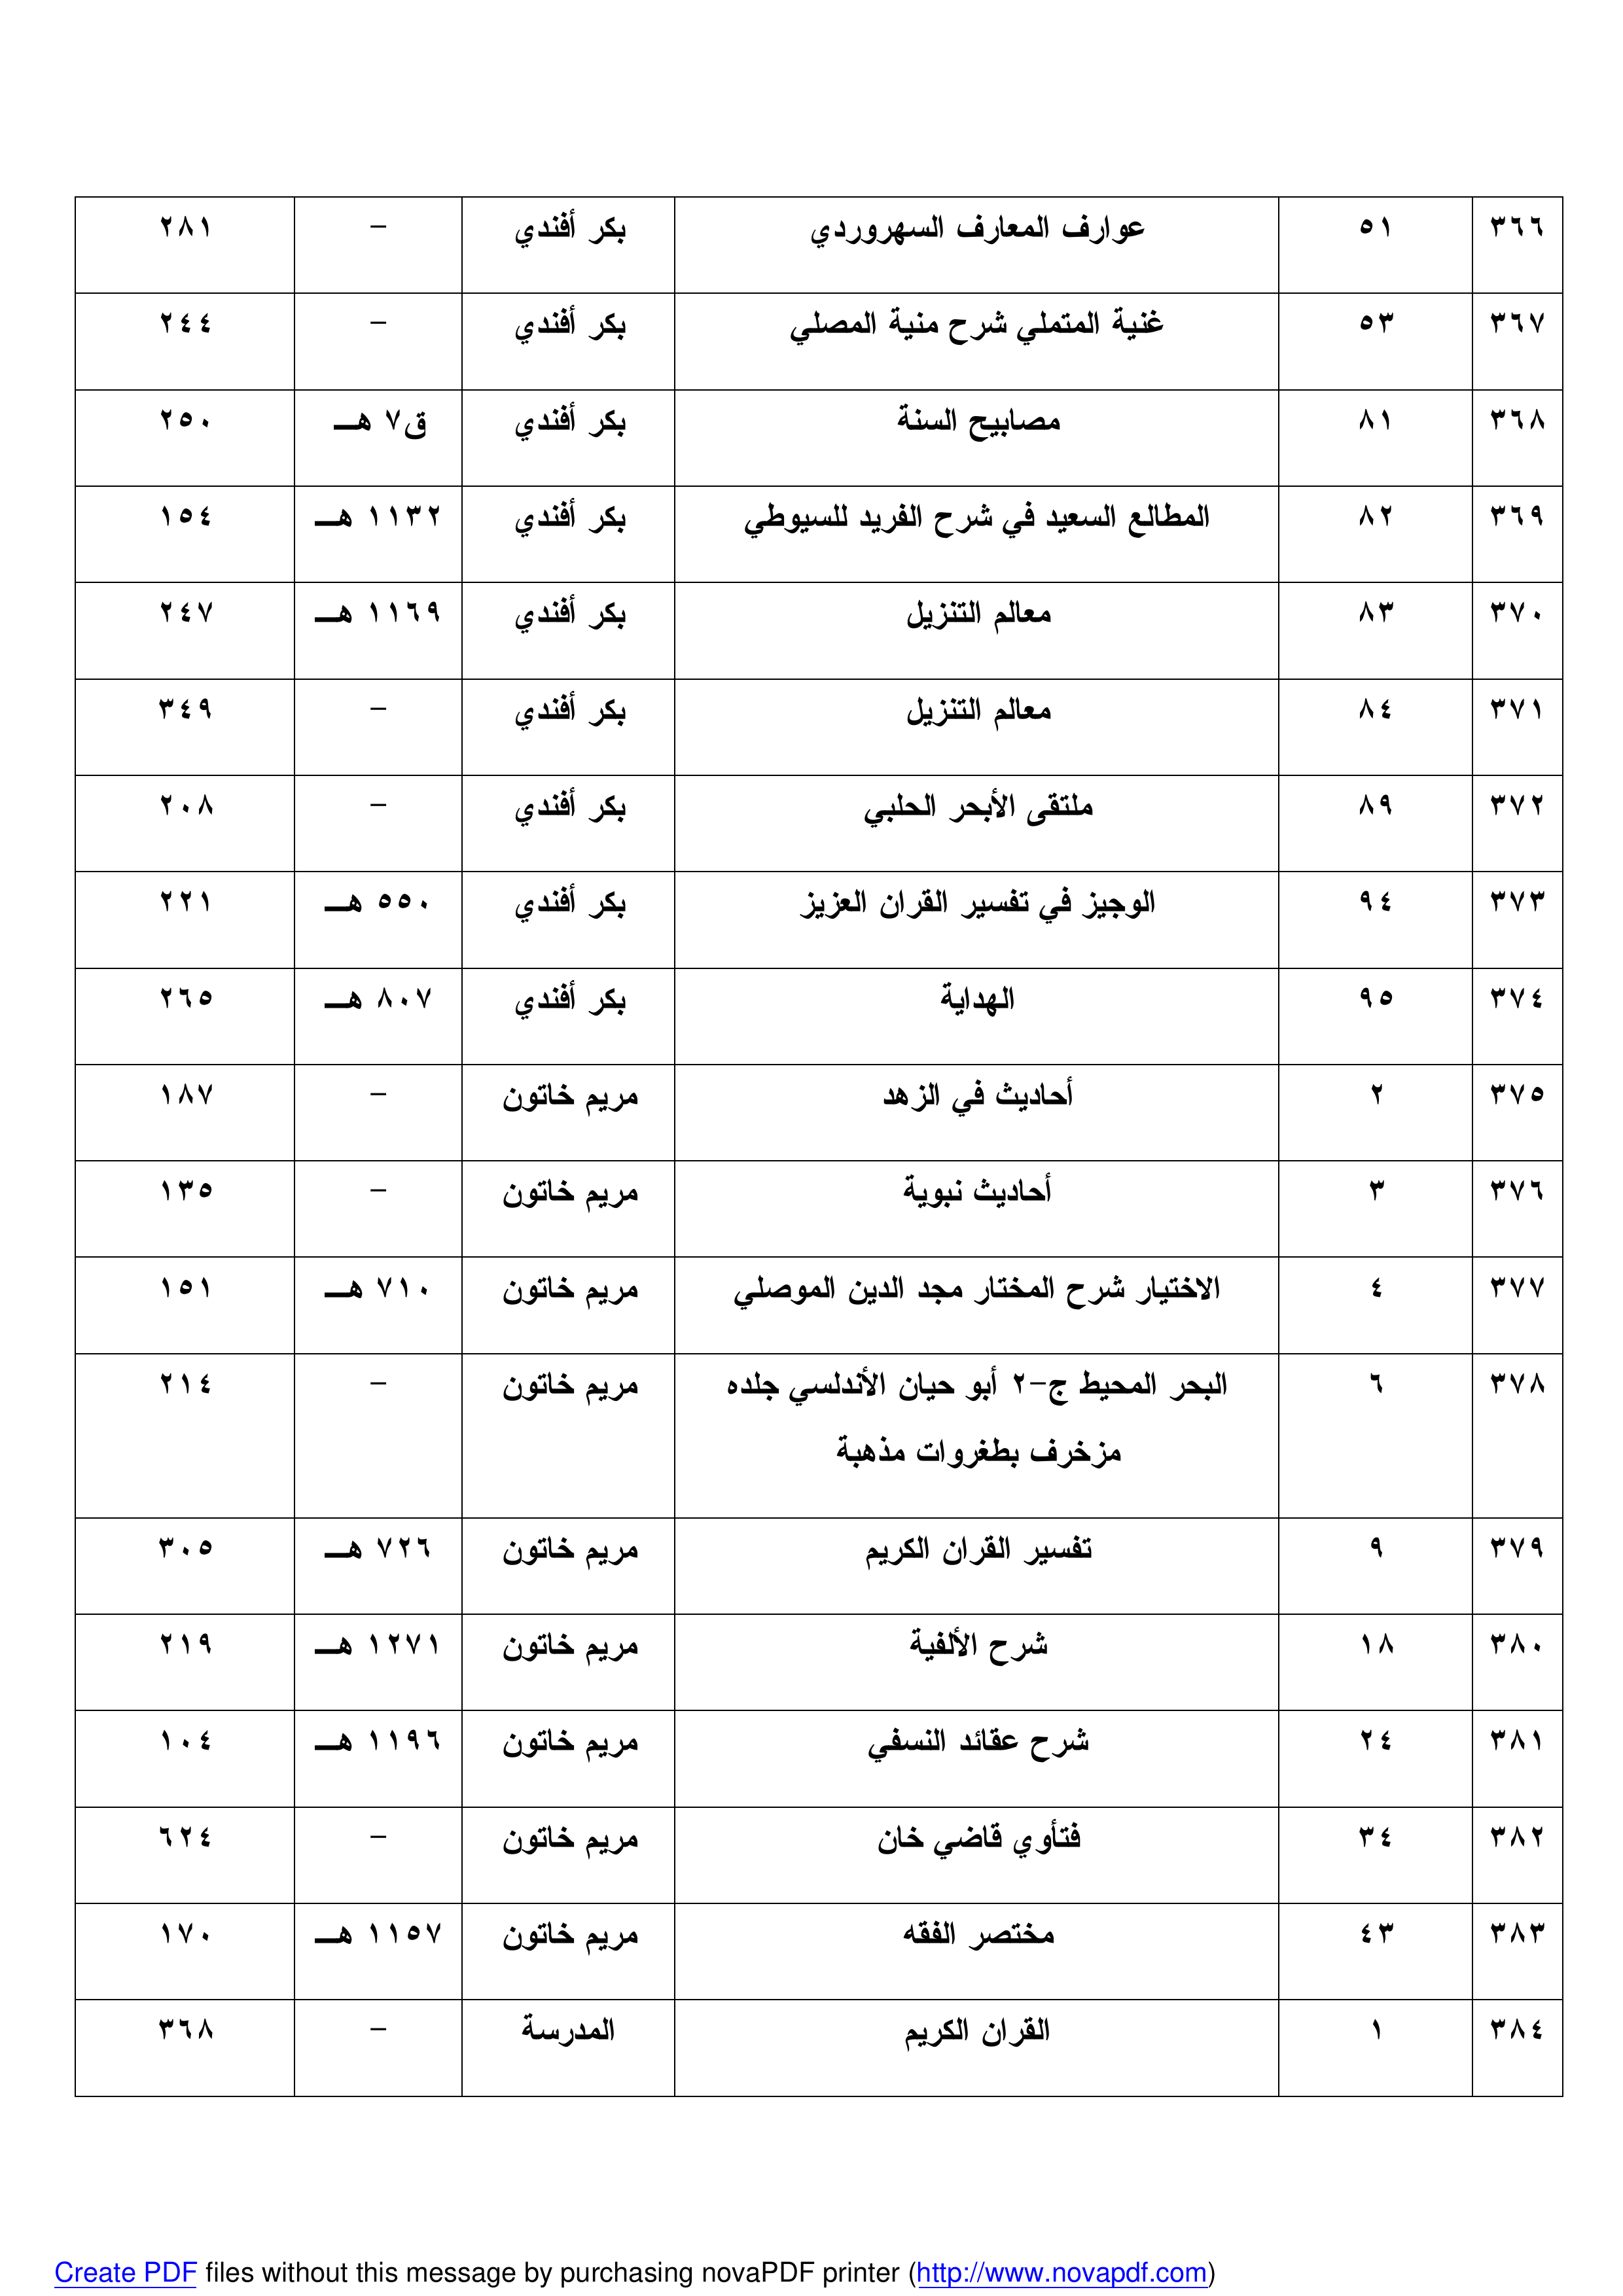 ٣٦٦ ٥١ عوارف المعارف السهروردي بكر أفندي – ٢٨١
٣٦٧ ٥٣ غنية المتملي شرح منية المصلي بكر أفندي – ٢٤٤
٣٦٨ ٨١ مصابيح السنة بكر أفندي ق٧ هـ ٢٥٠
٣٦٩ ٨٢ المطالع السعيد في شرح الفريد للسيوطي بكر أفندي ١١٣٢ هـ ١٥٤
٣٧٠ ٨٣ معالم التنزيل بكر أفندي ١١٦٩ هـ ٢٤٧
٣٧١ ٨٤ معالم التنزيل بكر أفندي – ٣٤٩
٣٧٢ ٨٩ ملتقى الأبحر الحلبي بكر أفندي – ٢٠٨
٣٧٣ ٩٤ الوجيز في تفسير القران العزيز بكر أفندي ٥٥٠ هـ ٢٢١
٣٧٤ ٩٥ الهداية بكر أفندي ٨٠٧ هـ ٢٦٥
٣٧٥ ٢ أحاديث في الزهد مريم خاتون – ١٨٧
٣٧٦ ٣ أحاديث نبوية مريم خاتون – ١٣٥
٣٧٧ ٤ الاختيار شرح المختار مجد الدين الموصلي مريم خاتون ٧١٠ هـ ١٥١
٣٧٨ ٦ البحر المحيط ج-٢ أبو حيان الأندلسي جلده مريم خاتون – ٢١٤
مزخرف بطغروات مذهبة
٣٧٩ ٩ تفسير القران الكريم مريم خاتون ٧٢٦ هـ ٣٠٥
٣٨٠ ١٨ شرح الألفية مريم خاتون ١٢٧١ هـ ٢١٩
٣٨١ ٢٤ شرح عقائد النسفي مريم خاتون ١١٩٦ هـ ١٠٤
٣٨٢ ٣٤ فتأوي قاضي خان مريم خاتون – ٦٢٤
٣٨٣ ٤٣ مختصر الفقه مريم خاتون ١١٥٧ هـ ١٧٠
٣٨٤ ١ القران الكريم المدرسة – ٣٦٨
Create PDF files without this message by purchasing novaPDF printer (http://www.novapdf.com)